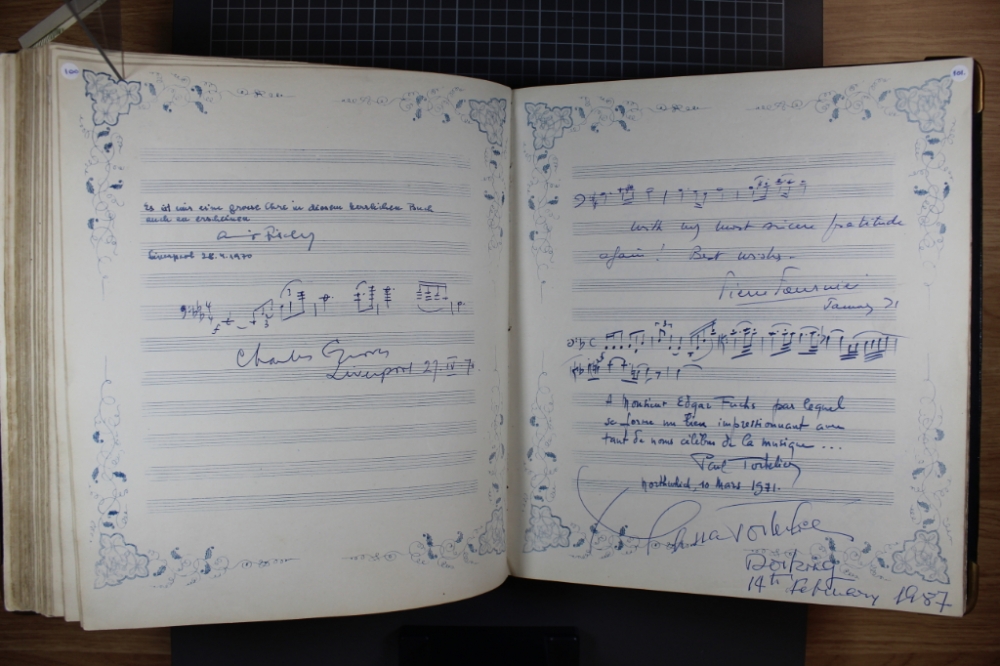 100
Es ist mir eine grosse Ehre in diesem herrlichen Buch
auch zu erscheinen
Liverpool 28.4.1970
Charles Groves
Liverpool 29.IV.70
101
with my most sincere gratitude
again! Best wishes.
Pierre Fournier
January 71
A Monsieur Edgar Fuchs par lequel
se forme un lien impressionnant avec
tant de noms célèbres de la musique ...
Paul Tortelier
Northwich, 10 Mars 1971.
Tortelier
Dorking
14th February 1987